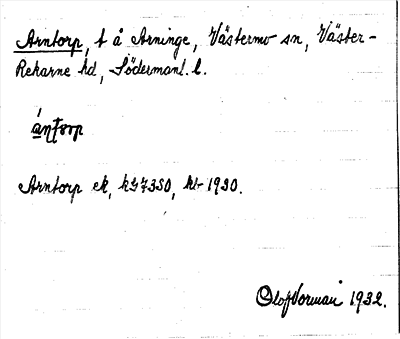 Arntorp, t å Arninge, Västermo sn, Väster-
Rekarne hd, Södermanl. l.
ántorp
Arntorp ek, kb 7350, kb 1930.
Olof Vorman 1932.